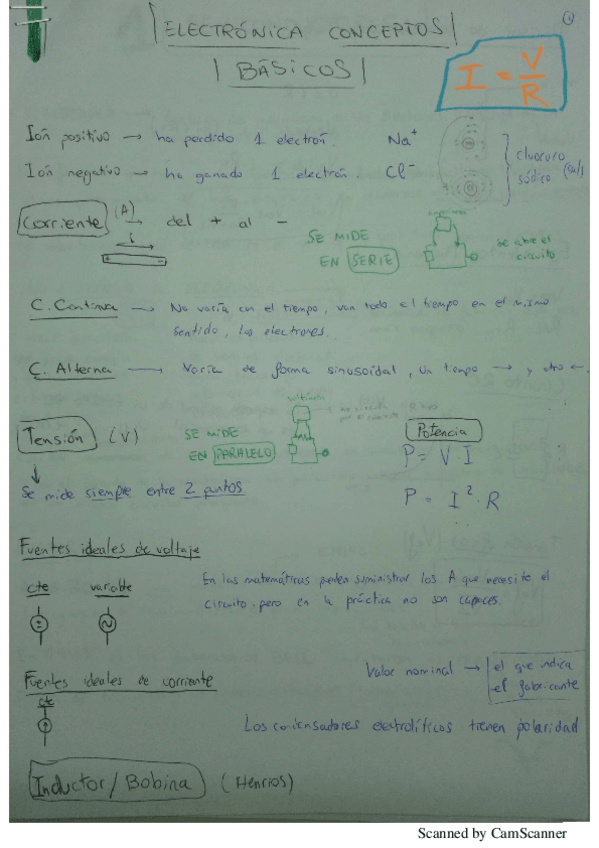 1
ELECTRÓNICA CONCEPTOS
BÁSICOS
I = V/R
Ión positivo → ha perdido 1 electrón. Na+
Ión negativo → ha ganado 1 electrón. Cl-
cloruro sódico
Corriente (A) → del + al -
i
SE MIDE
EN SERIE
se abre el
circuito
C. Continua → No varía en el tiempo, van todo el tiempo en el mismo
sentido, los electrones.
C. Alterna → Varía de forma sinusoidal, un tiempo → y otro ←.
Tensión (V)
SE MIDE
EN PARALELO
voltímetro
no circula
Potencia
P = V · I
P = I² · R
Se mide siempre entre 2 puntos
Fuentes ideales de voltaje
cte variable
En las matemáticas pueden suministrar los A que necesite el
circuito, pero en la práctica no son capaces.
Valor nominal → el que indica
el fabricante
Fuentes ideales de corriente
cte
Los condensadores electrolíticos tienen polaridad
Inductor/Bobina (Henrios)
Scanned by CamScanner